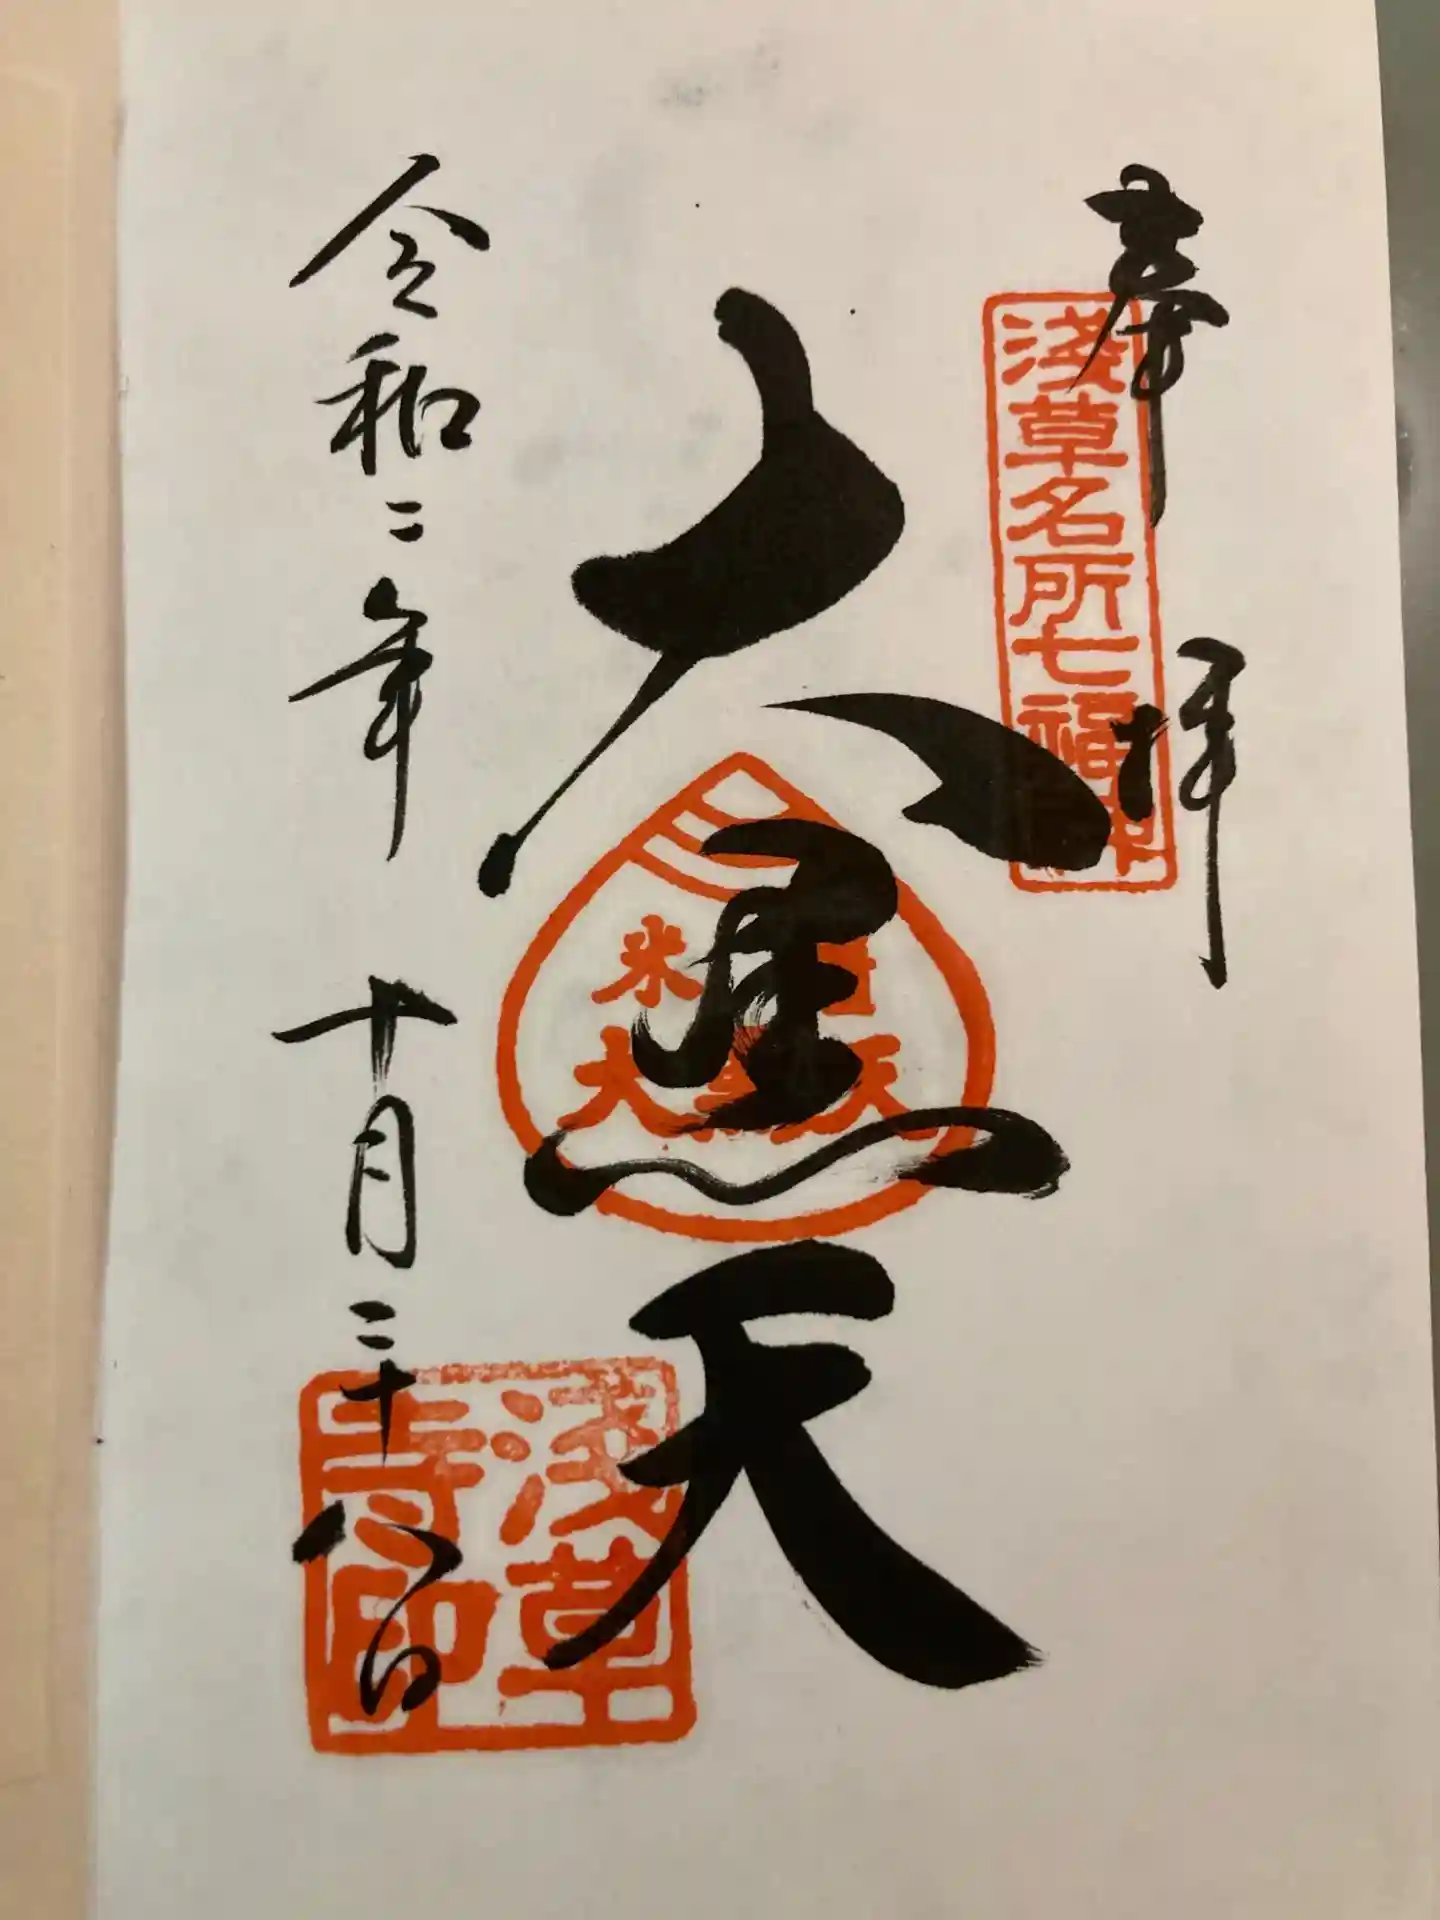 奉拝
浅草名所七福神
大黒天
米
大黒天
令和二年十月二十八日
浅草
寺印